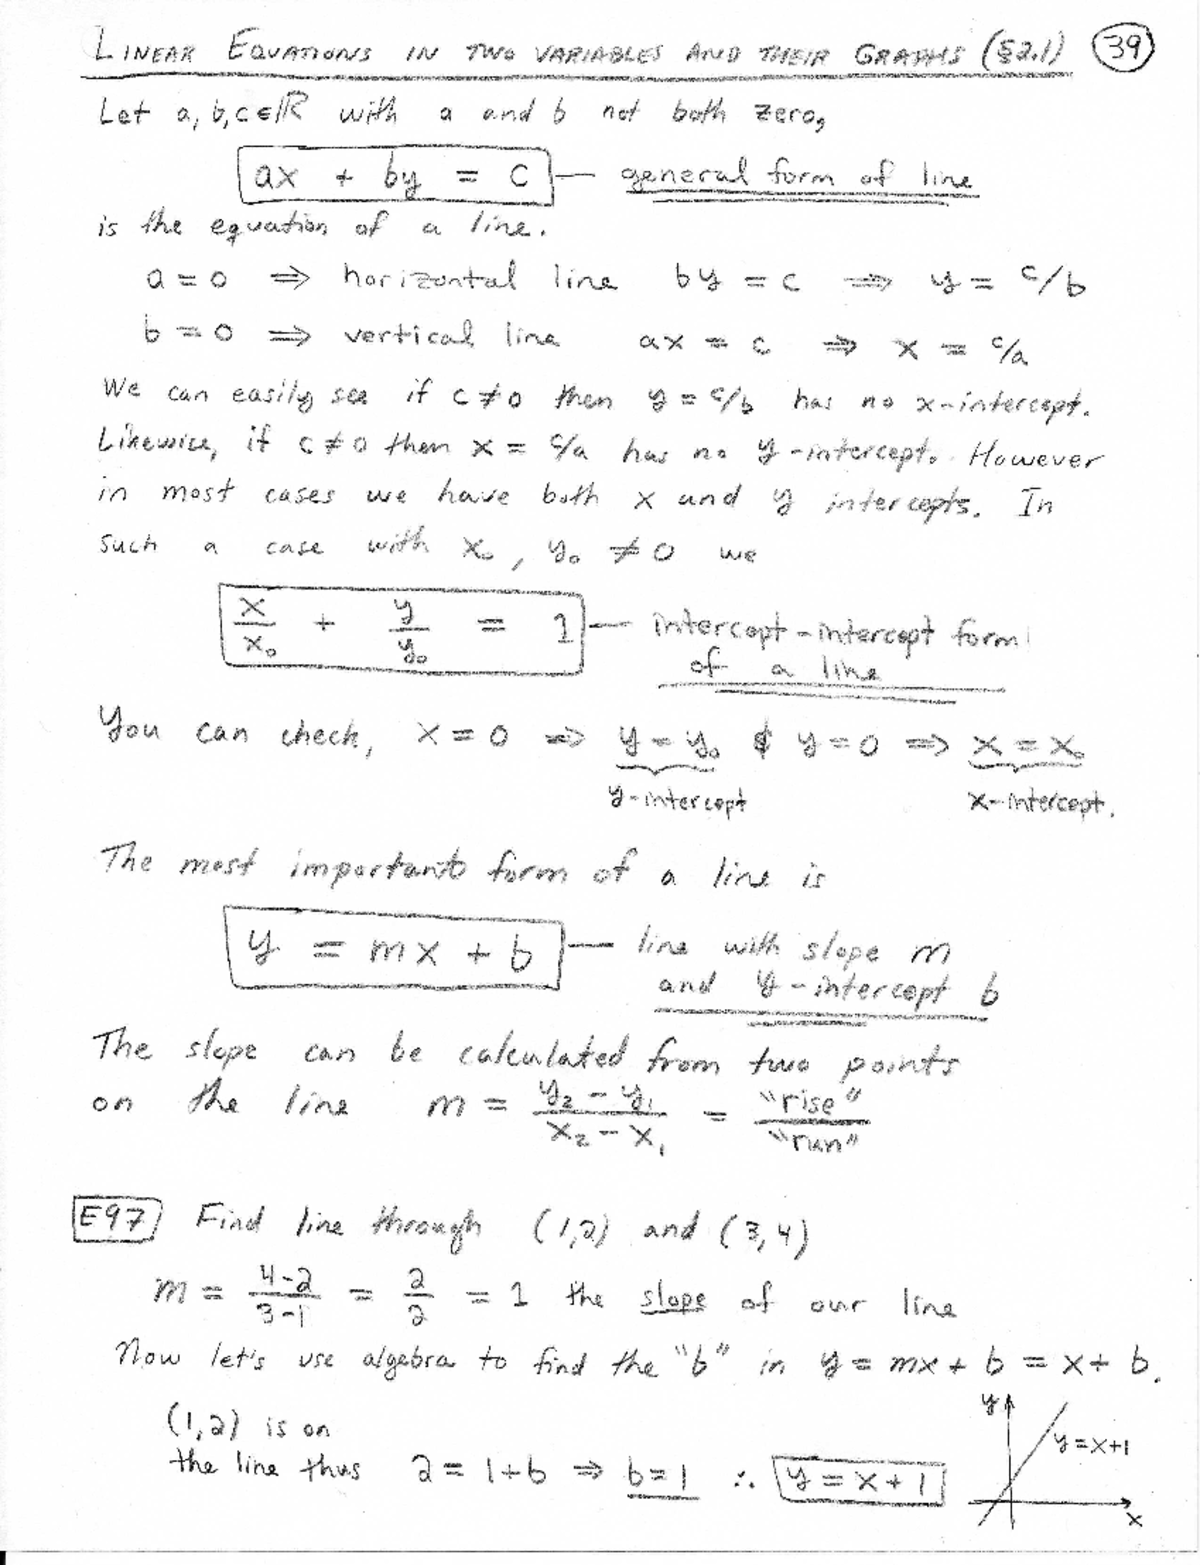 LINEAR EQUATIONS IN TWO VARIABLES AND THEIR GRAPHS (§2.1) 39
Let a, b, c ∈ ℝ with a and b not both zero,
ax + by = c — general form of line
is the equation of a line.
a = 0 ⇒ horizontal line by = c ⇒ y = c/b
b = 0 ⇒ vertical line ax = c ⇒ x = c/a
We can easily see if c ≠ 0 then y = c/b has no x-intercept.
Likewise, if c ≠ 0 then x = c/a has no y-intercept. However
in most cases we have both x and y intercepts. In
such a case with x₀, y₀ ≠ 0 we
x/x₀ + y/y₀ = 1 — intercept-intercept form
of a line
You can check, x = 0 ⇒ y = y₀ & y = 0 ⇒ x = x₀
y-intercept x-intercept.
The most important form of a line is
y = mx + b — line with slope m
and y-intercept b
The slope can be calculated from two points
on the line m = (y₂ - y₁)/(x₂ - x₁) = "rise"/"run"
E97 Find line through (1,2) and (3,4)
m = (4-2)/(3-1) = 2/2 = 1 the slope of our line
Now let's use algebra to find the "b" in y = mx + b = x + b.
(1,2) is on
the line thus 2 = 1+b ⇒ b = 1 ∴ y = x + 1
y
y = x+1
x